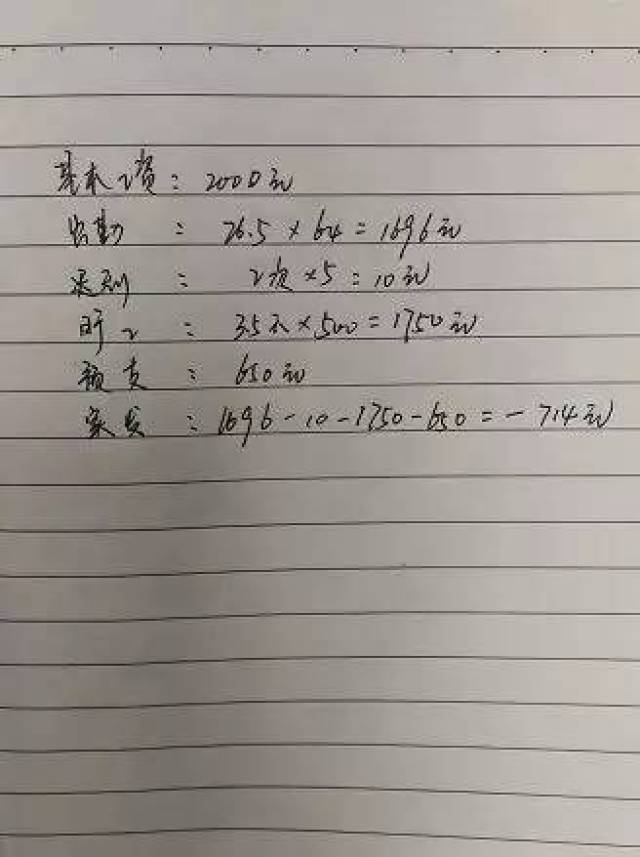 基本工资：2000元
出勤：26.5×64=1696元
迟到：2次×5=10元
旷工：3.5天×500=1750元
预支：650元
实发：1696-10-1750-650=-714元